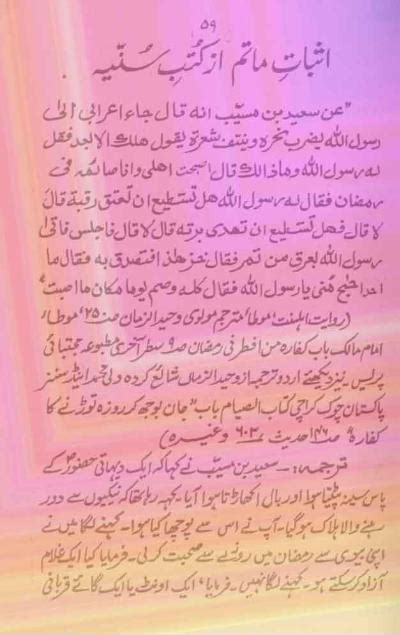 ۵۹
اثباتِ ماتم از کُتبِ سُنّیہ
"عن سعید بن مسیّب انہ قال جاء اعرابی الیٰ
رسول اللہ یضرب نحرہ وینتف شعرہ یقول ھلک الابعد فقال
لہ رسول اللہ وماذالک قال اصبت اھلی وانا صائم فی
رمضان فقال لہ رسول اللہ ھل تستطیع ان تعتق رقبۃ قال
لا قال فھل تستطیع ان تھدی بدنۃ قال لا قال فاجلس فاتیٰ
رسول اللہ بعرق من تمر فقال خذ ھذا فتصدق بہ فقال ما
احد احوج منی یارسول اللہ فقال کلہ وصم یوما مکان ما اصبت"
(روایت اہلسنت "موطا" مترجم مولوی وحید الزمان ص۲۵ "موطا"
امام مالک باب کفارہ من افطر فی رمضان ص۹ سطر آخری مطبوعہ مجتبائی
پریس نیز دیکھئے اردو ترجمہ از وحید الزماں شائع کردہ ولی محمد اینڈ سنز
پاکستان چوک کراچی کتاب الصیام باب "جان بوجھ کر روزہ توڑنے کا
کفارہ" ص۱۴۶ حدیث ۶۰۲ وغیرہ)
ترجمہ:۔ سعید بن مسیّب نے کہا کہ ایک دیہاتی حضورؐ کے
پاس سینہ پیٹتا ہوا اور بال اکھاڑتا ہوا آیا۔ کہہ رہا تھا کہ نیکیوں سے دور
رہنے والا ہلاک ہوگیا۔ آپ نے اس سے پوچھا کیا ہوا۔ کہنے لگا میں نے
اپنی بیوی سے رمضان میں روزے سے صحبت کرلی۔ فرمایا کیا ایک غلام
آزاد کرسکتے ہو۔ کہنے لگا نہیں۔ فرمایا، ایک اونٹ یا ایک گائے قربانی